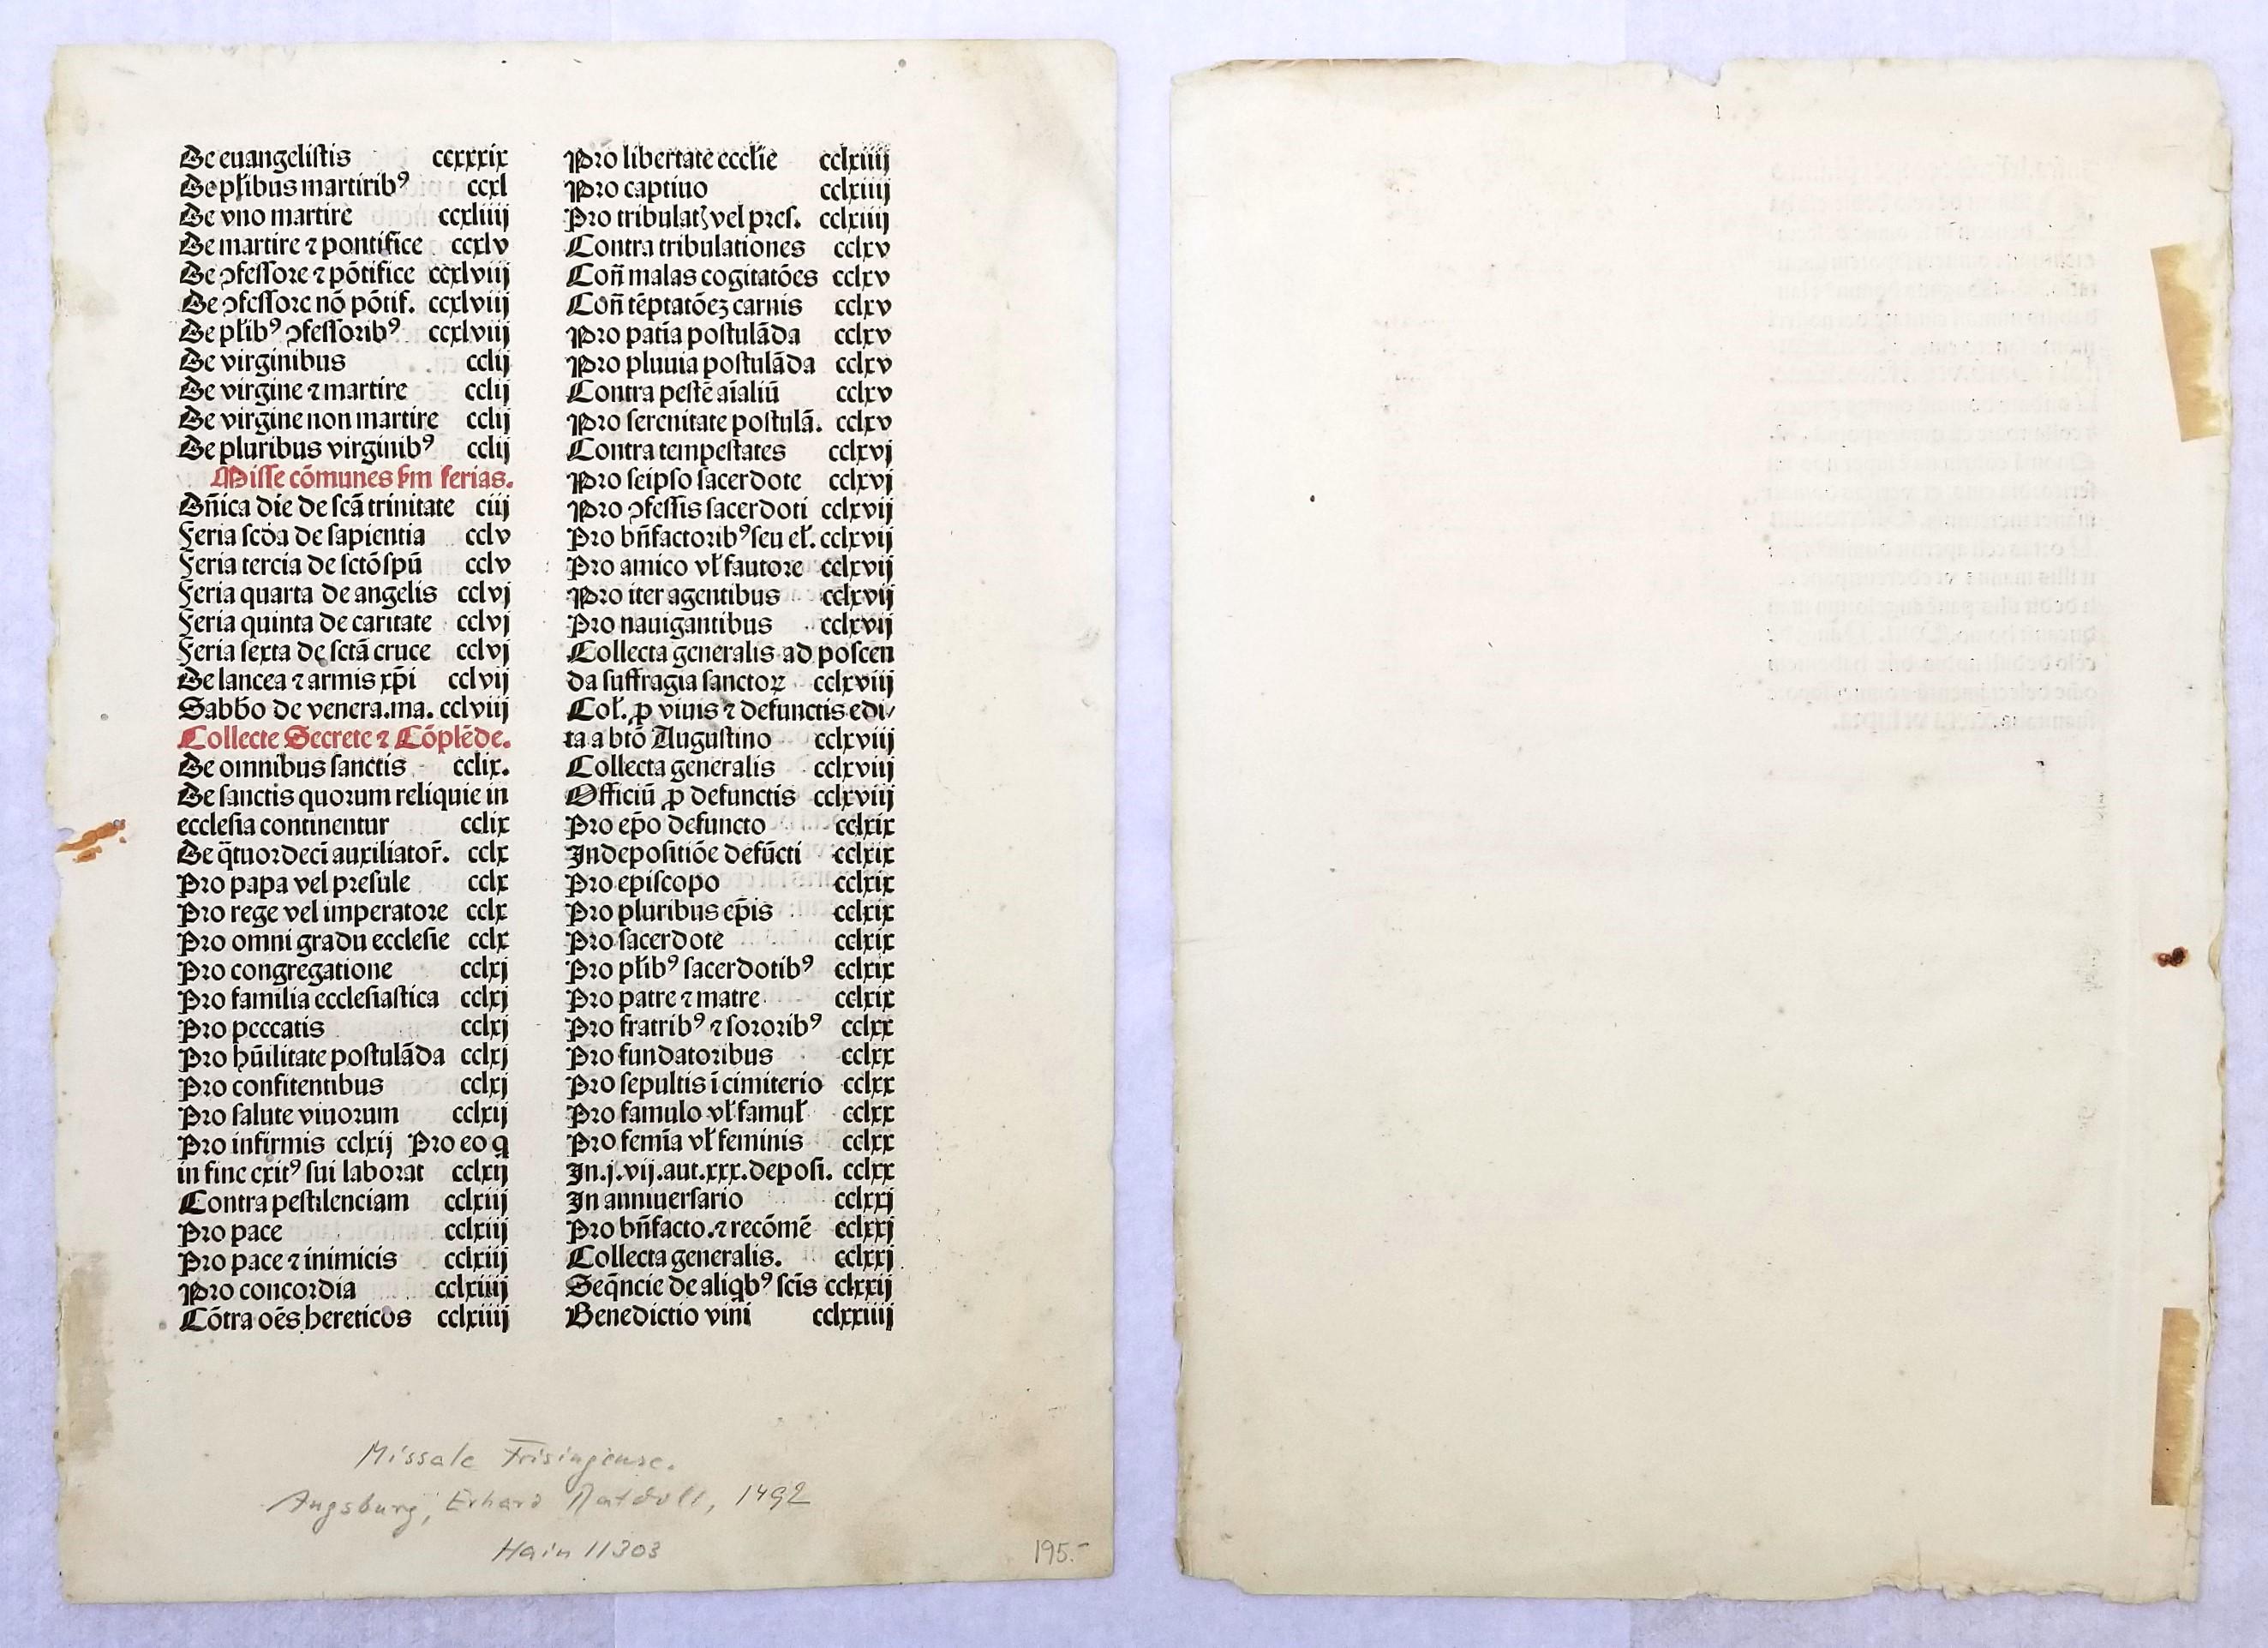 De euangelistis ccxxxix
De pľibus martiribꝰ ccxl
De vno martire ccxliiij
De martire ⁊ pontifice ccxlv
De ↄfessore ⁊ põtifice ccxlviij
De ↄfessore nõ põtif. ccxlviij
De pľibꝰ ↄfessoribꝰ ccxlviij
De virginibus cclij
De virgine ⁊ martire cclij
De virgine non martire cclij
De pluribus virginibꝰ cclij
Misse cõmunes ẜm ferias.
Dñica die de scã trinitate ciij
Feria scďa de sapientia cclv
Feria tercia de sctõ spũ cclv
Feria quarta de angelis cclvj
Feria quinta de caritate cclvj
Feria sexta de sctã cruce cclvj
De lancea ⁊ armis xp̄i cclvij
Sabb̄o de venera.ma. cclviij
Collecte Secrete ⁊ Cõplēde.
De omnibus sanctis cclix.
De sanctis quorum reliquie in
ecclesia continentur cclix
De q̄tuordecī auxiliatoř. cclx
Pro papa vel presule cclx
Pro rege vel imperatore cclx
Pro omni gradu ecclesie cclx
Pro congregatione cclxj
Pro familia ecclesiastica cclxj
Pro peccatis cclxj
Pro hūilitate postulãda cclxj
Pro confitentibus cclxj
Pro salute viuorum cclxij
Pro infirmis cclxij Pro eo q
in fine exitꝰ sui laborat cclxij
Contra pestilenciam cclxiij
Pro pace cclxiij
Pro pace ⁊ inimicis cclxiij
Pro concordia cclxiiij
Cõtra oēs hereticos cclxiiij
Pro libertate eccľie cclxiiij
Pro captiuo cclxiiij
Pro tribulatꝫ vel pres. cclxiiij
Contra tribulationes cclxv
Coñ malas cogitatões cclxv
Coñ tēptatõeꝫ carnis cclxv
Pro patīa postulãda cclxv
Pro pluuia postulãda cclxv
Contra pestē aīaliū cclxv
Pro serenitate postulã. cclxv
Contra tempestates cclxvj
Pro seipso sacerdote cclxvj
Pro ↄfessis sacerdoti cclxvij
Pro bñfactoribꝰ seu eľ. cclxvij
Pro amico vľ fautore cclxvij
Pro iter agentibus cclxvij
Pro nauigantibus cclxvij
Collecta generalis ad poscen
da suffragia sanctoꝝ cclxviij
Coľ. ꝓ viuis ⁊ defunctis edi/
ta a btõ Augustino cclxviij
Collecta generalis cclxviij
Officiū ꝓ defunctis cclxviij
Pro ep̄o defuncto cclxix
In depositiõe defūcti cclxix
Pro episcopo cclxix
Pro pluribus ep̄is cclxix
Pro sacerdote cclxix
Pro pľibꝰ sacerdotibꝰ cclxix
Pro patre ⁊ matre cclxix
Pro fratribꝰ ⁊ sororibꝰ cclxx
Pro fundatoribus cclxx
Pro sepultis ī cimiterio cclxx
Pro famulo vľ famuľ cclxx
Pro femīa vľ feminis cclxx
In.j.vij.aut.xxx.deposi. cclxx
In anniuersario cclxxj
Pro bñfacto.⁊ recõmē cclxxj
Collecta generalis. cclxxj
Seq̄ncie de aliqbꝰ scīs cclxxij
Benedictio vini cclxxiiij
Missale Frisingense.
Augsburg, Erhard Ratdolt, 1492
Hain 11303
195.-